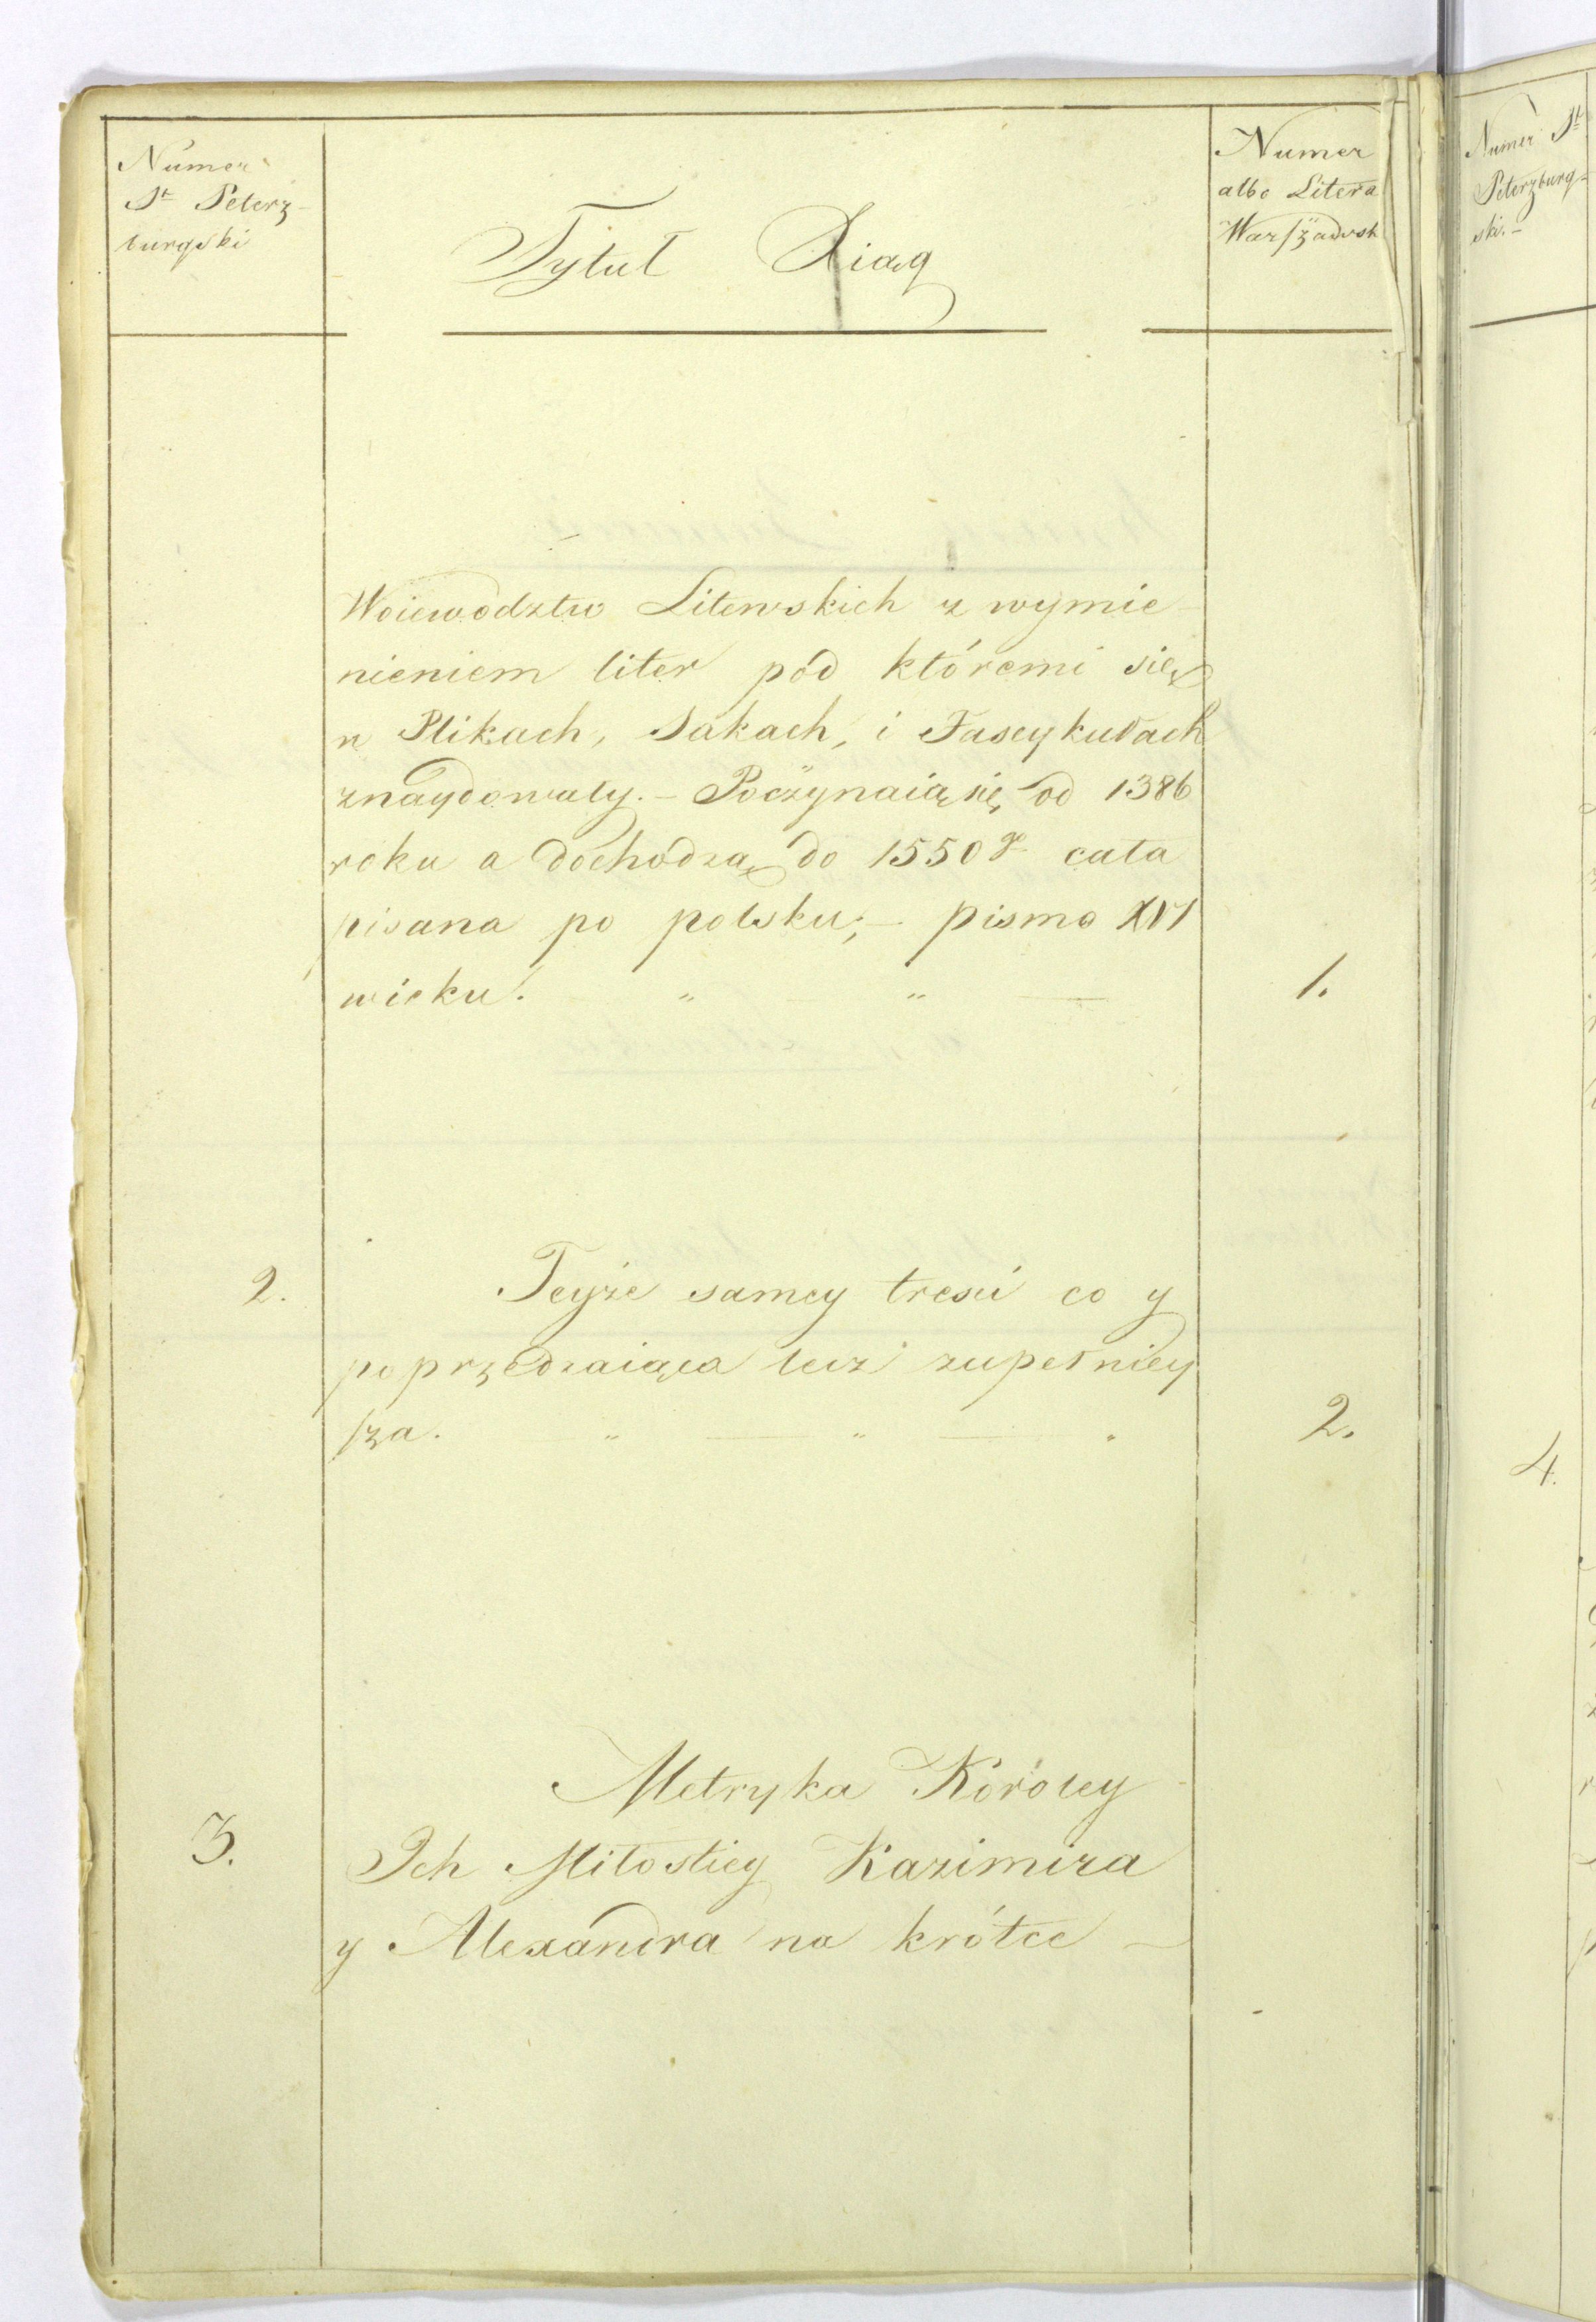 Numer
St Peterz-
burgski
Tytuł Xiąg
Numer
albo Litera
Warszawsk
Woiewodztw Litewskich z wymie-
nieniem liter pod któremi się
w Plikach, Sakach, i Fascykułach
znaydowały. - Poczynaią się od 1386
roku a dochodzą do 1550 r cała
pisana po polsku; - pismo XVI
wieku. " " —
1.
2.
Teyże samey treści co y
poprzedzaiąca lecz zupełniey
sza. " — " — "
2.
3.
Metryka Koroley
Ich Miłostiey Kazimira
y Alexandra na krótce —
Numer St
Peterzburg-
ski. -
4.